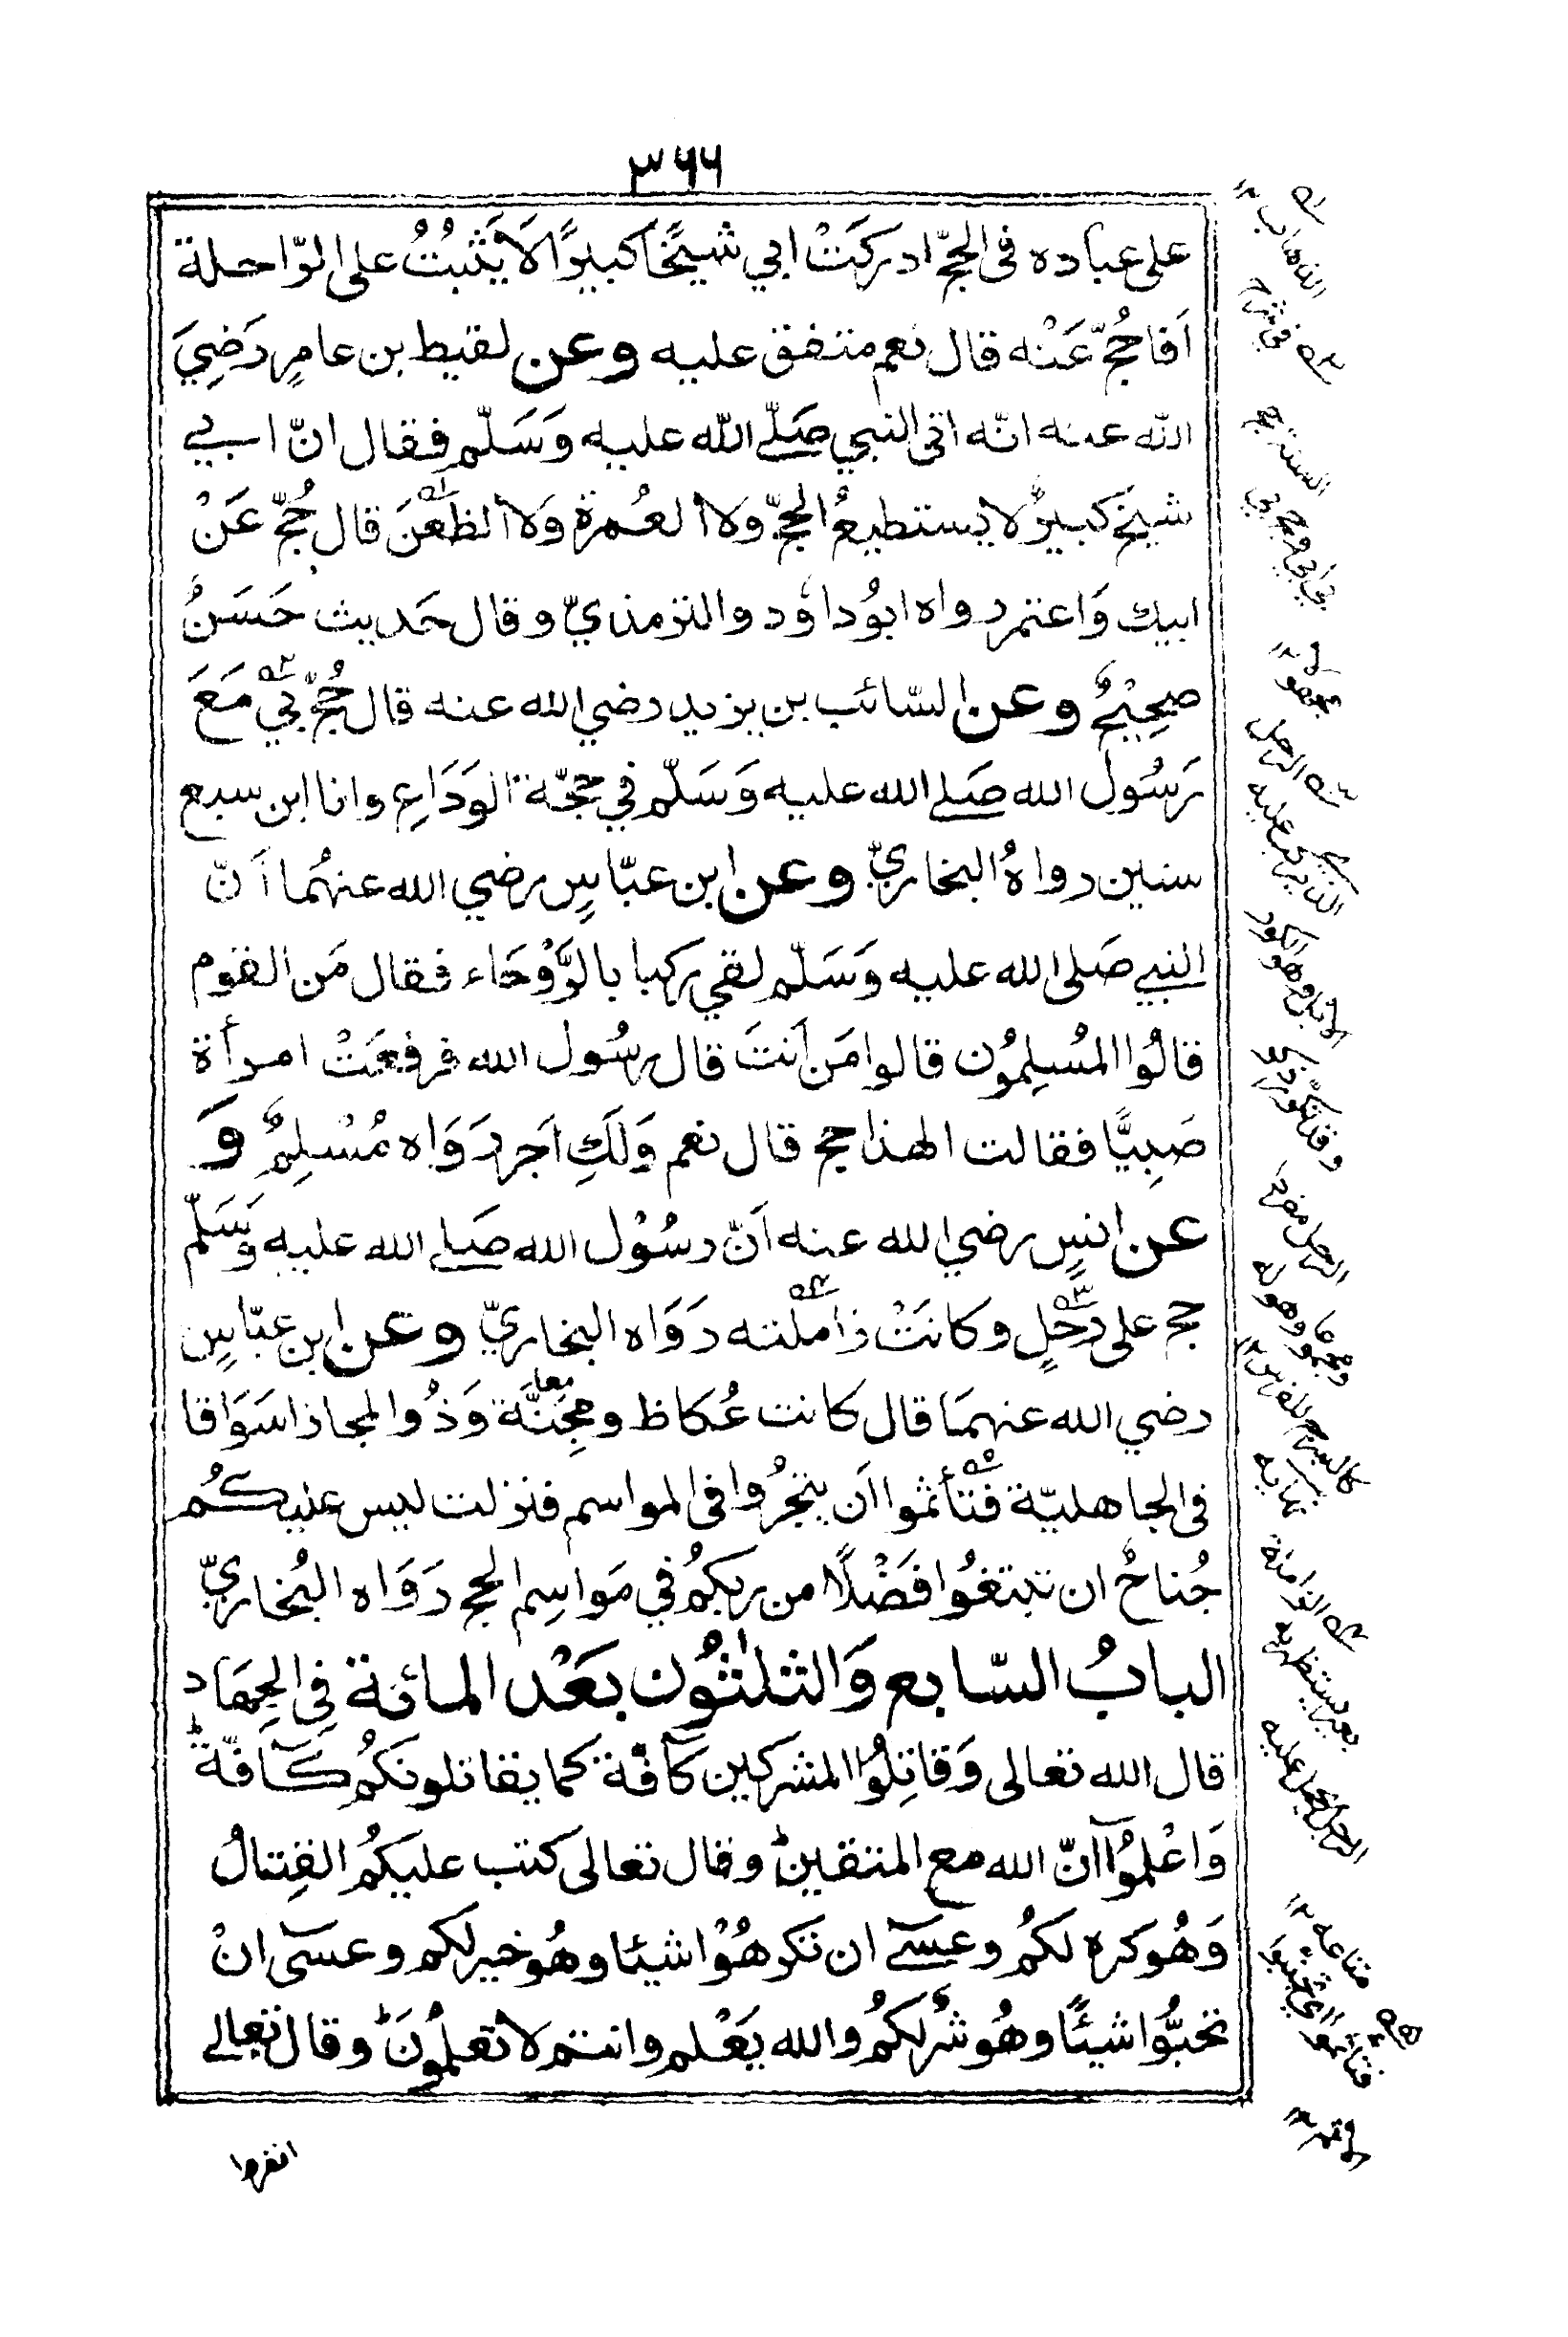 ٣٦٦
على عباده فى الحجّ ادركَتْ ابي شيخًا كبيرًا لَا يَثْبُتُ على الرّاحلة
اَفاحُجّ عَنْه قال نعم متفق عليه وعن لقيط بن عامرٍ رَضِيَ
الله عنه انّه اتى النبي صَلّے الله عليه وَسَلّم فقال انّ ابي
شيخ كبيرٌ لا يستطيعُ الحجّ ولا العُمرة وَلا الظعْنَ قال حُجّ عَنْ
ابيك وَاعتمر رواه ابوُداوٗد والترمذيّ وقال حَديث حَسَنٌ
صحِيْحٌ وعن السّائب بن يزيد رضي الله عنه قال حُجّ بيْ مَعَ
رَسُول الله صَلے الله عليه وَسَلّم في حجّة الوَدَاعِ وانا ابن سبع
سنين رواهُ البخاريّ وعن ابن عبّاسٍ رضي الله عنهُما اَنّ
النبي صَلى الله عليه وَسَلّم لقي ركبا بالرَّوْحَاء فقال مَن القوم
قالُوا المُسلِمُون قالوا مَن اَنتَ قال رسُول الله فرفعَتْ امرأة
صَبِيًّا فقالت الهذا حج قال نعم وَلَكِ اَجر رَوَاه مُسْلِمٌ وَ
عن انسٍ رضي الله عنه اَنّ رسُوْل الله صَلے الله عليه وَسَلّم
حج على رَحْلٍ وكانَتْ زاملته رَوَاه البخاريّ وعن ابن عبّاسٍ
رضي الله عنهمَا قال كانت عُكاظ ومجِنَّة وَذُوالمجاز اسَوَاقا
فى الجاهليّة فتَأثموا اَن يتجرُوا فى المواسم فنزلت ليس عليكُم
جُناحٌ ان تبتغُوا فَضْلًا من ربكمُ في مَواسِم الحج رَوَاه البُخاريّ
البابُ السّابع وَالثلٰثوُن بعَدْ المائة فِي الجِهَاد
قال الله تعالى وَقاتِلُوا المشركين كآفّة كما يقاتلونكمُ كَآفّةً ط
وَاعْلمُوْآ انّ الله مع المتقين ط وقال تعالى كتب عليكمُ القِتالُ
وَهُوكره لكمُ وعسٰے ان تكرهُوْا شيئا وهُوخير لكم وعسٰى انْ
تحبُّوا شيئًا وهُوشرٌ لكمُ والله يَعْلم وانتم لا تعلمُونَ ط وقال تعالے
انفروا